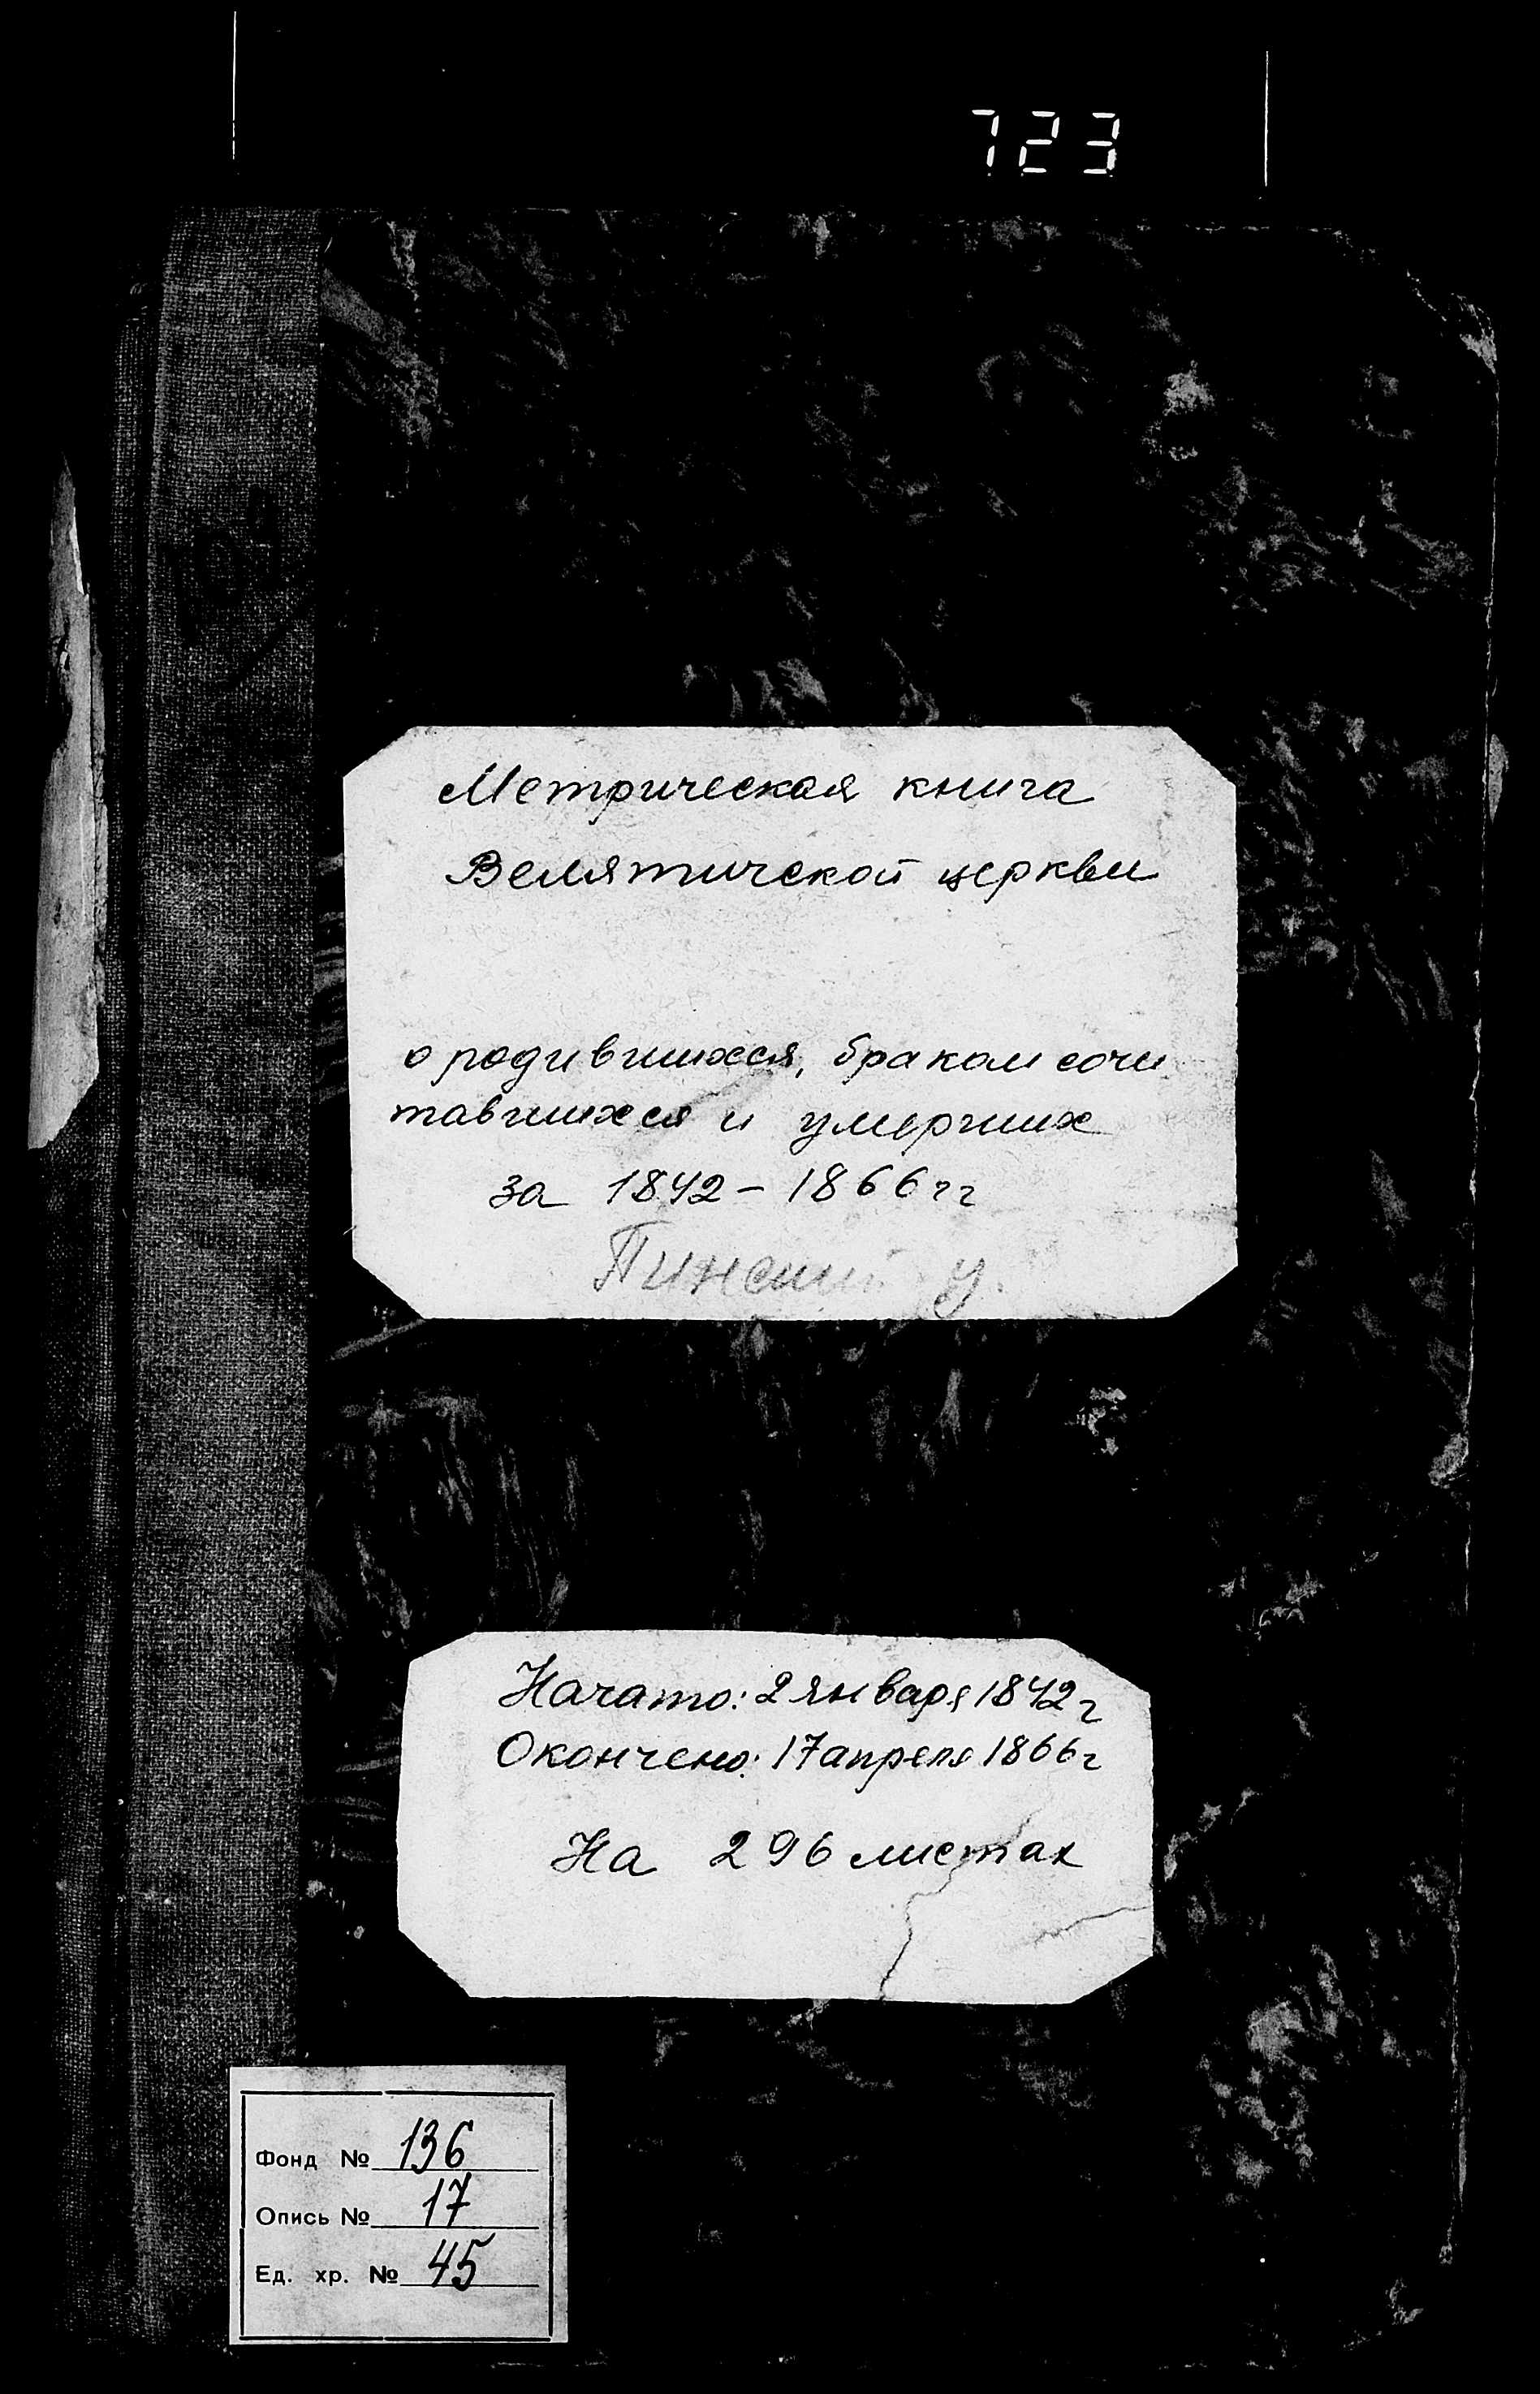 723
Метрическая книга
Велятической церкви
о родившихся, браком сочи
тавшихся и умерших
за 1842 - 1866 гг
Пинский у.
Начато: 2 января 1842 г
Окончено: 17 апреля 1866 г
На 296 листах
Фонд № 136
Опись № 17
Ед. хр. № 45